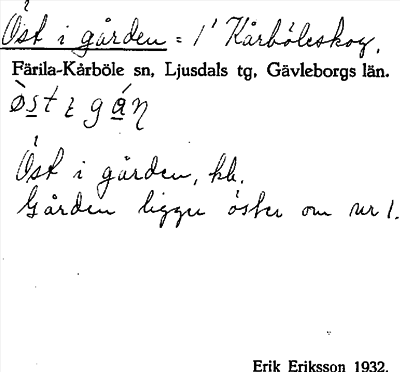 Öst i gården = 1' Kårböleskog.
Färila-Kårböle sn, Ljusdals tg, Gävleborgs län.
Öst i gården, hb.
Gården ligger öster om nr 1.
Erik Eriksson 1932.